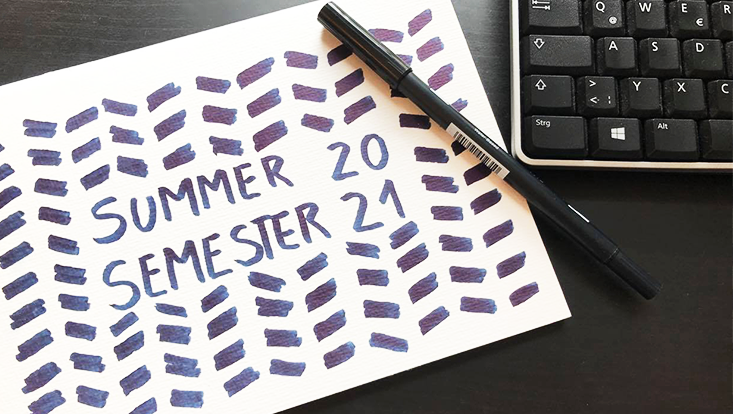 SUMMER 20
SEMESTER 21
Q W E R
@ €
A S D
> Y X C
< |
Strg Alt